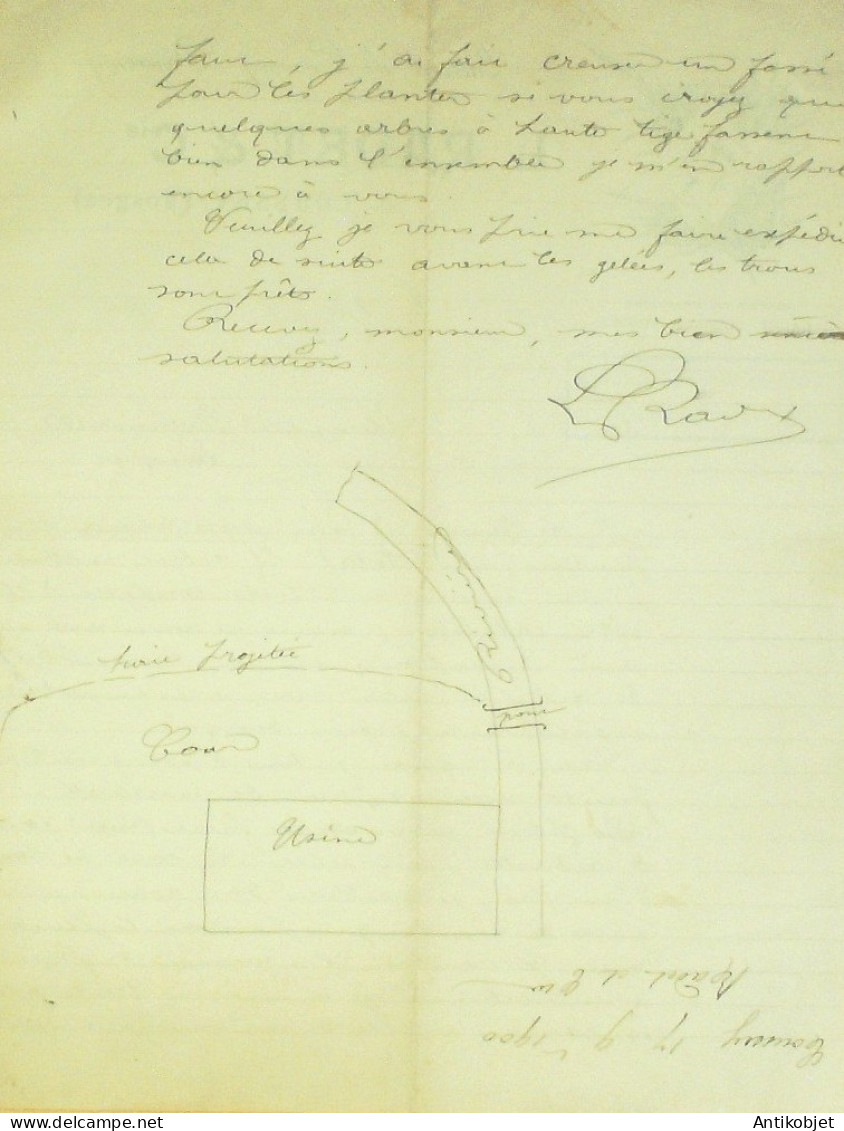 faur, j'ai fait creuser un fossé
pour les planter si vous croyez que
quelques arbres à haute tige fassent
bien dans l'ensemble je m'en rapport
encore à vous.
Veuillez je vous prie me faire expédi
cela de suite avant les gelées, les trous
sont prêts.
Recevez, monsieur, mes bien
salutations.
haie projetée
pont
Cour
Usine
17 9 1900
Antikobjet